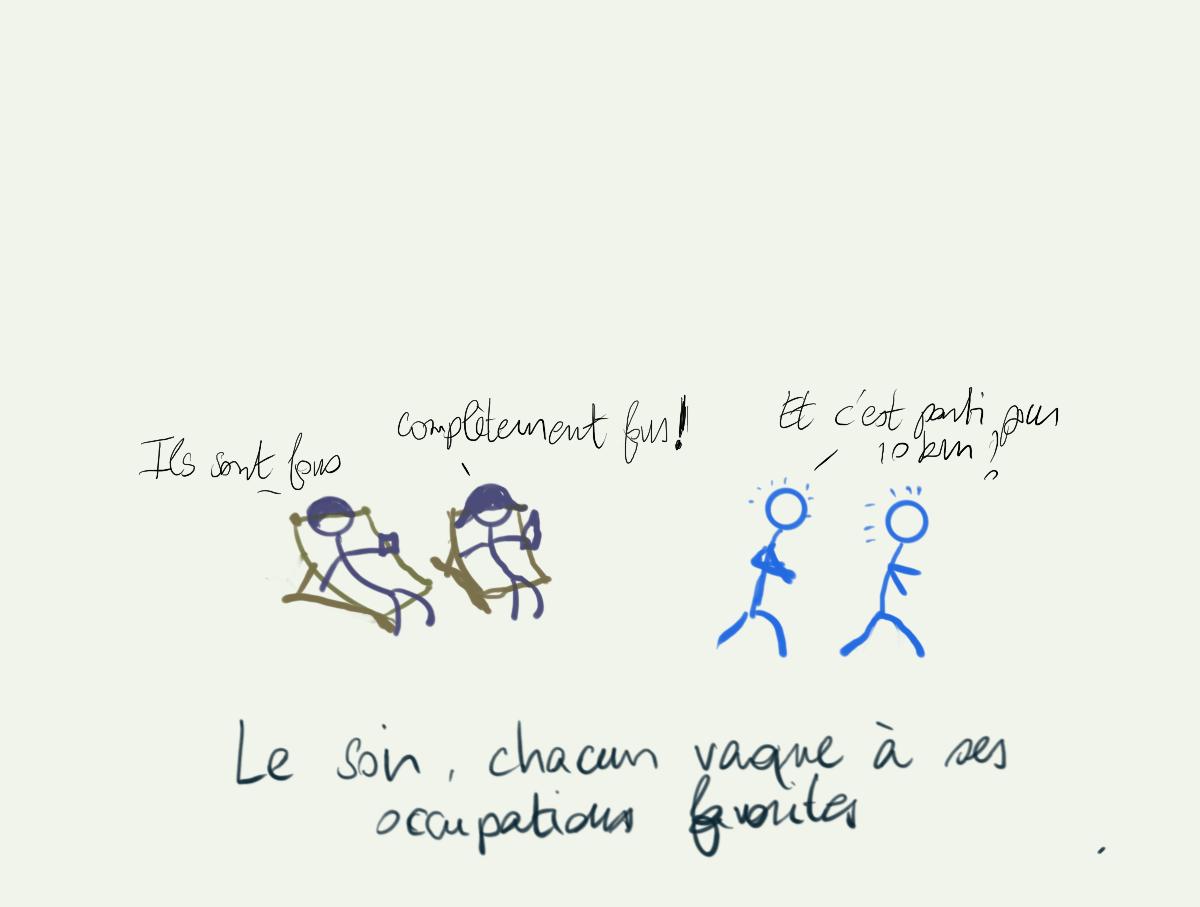 Ils sont fous
complètement fous!
Et c'est parti pour
10 km ?
Le soir, chacun vaque à ses
occupations favorites